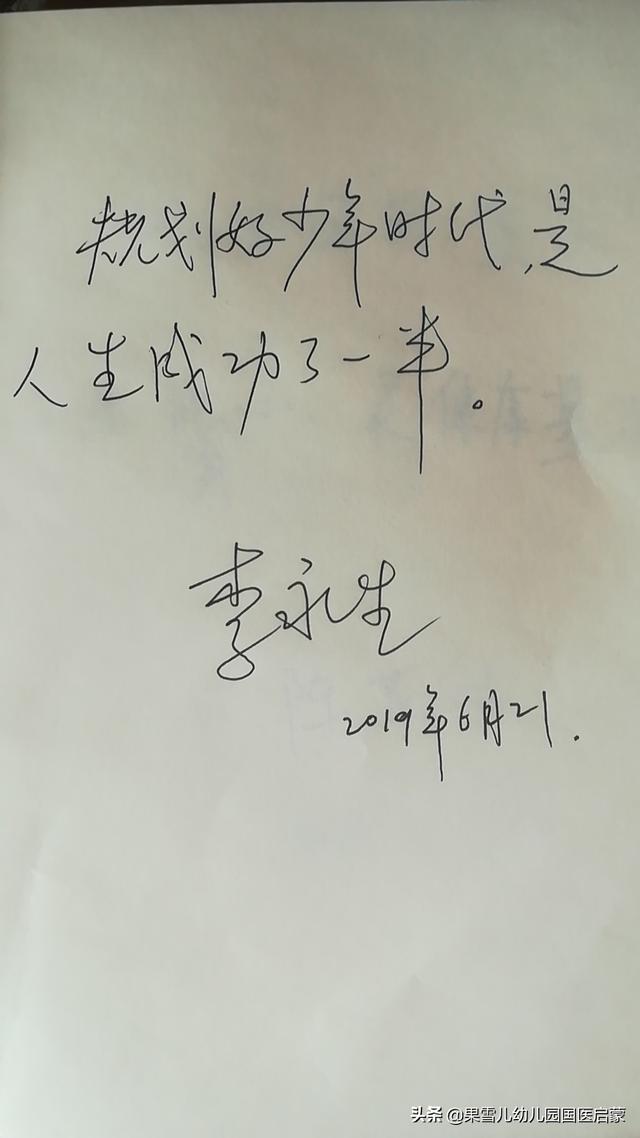 规划好少年时代,是
人生成功了一半。
李永生
2019年6月21.
头条 @果雪儿幼儿园国医启蒙